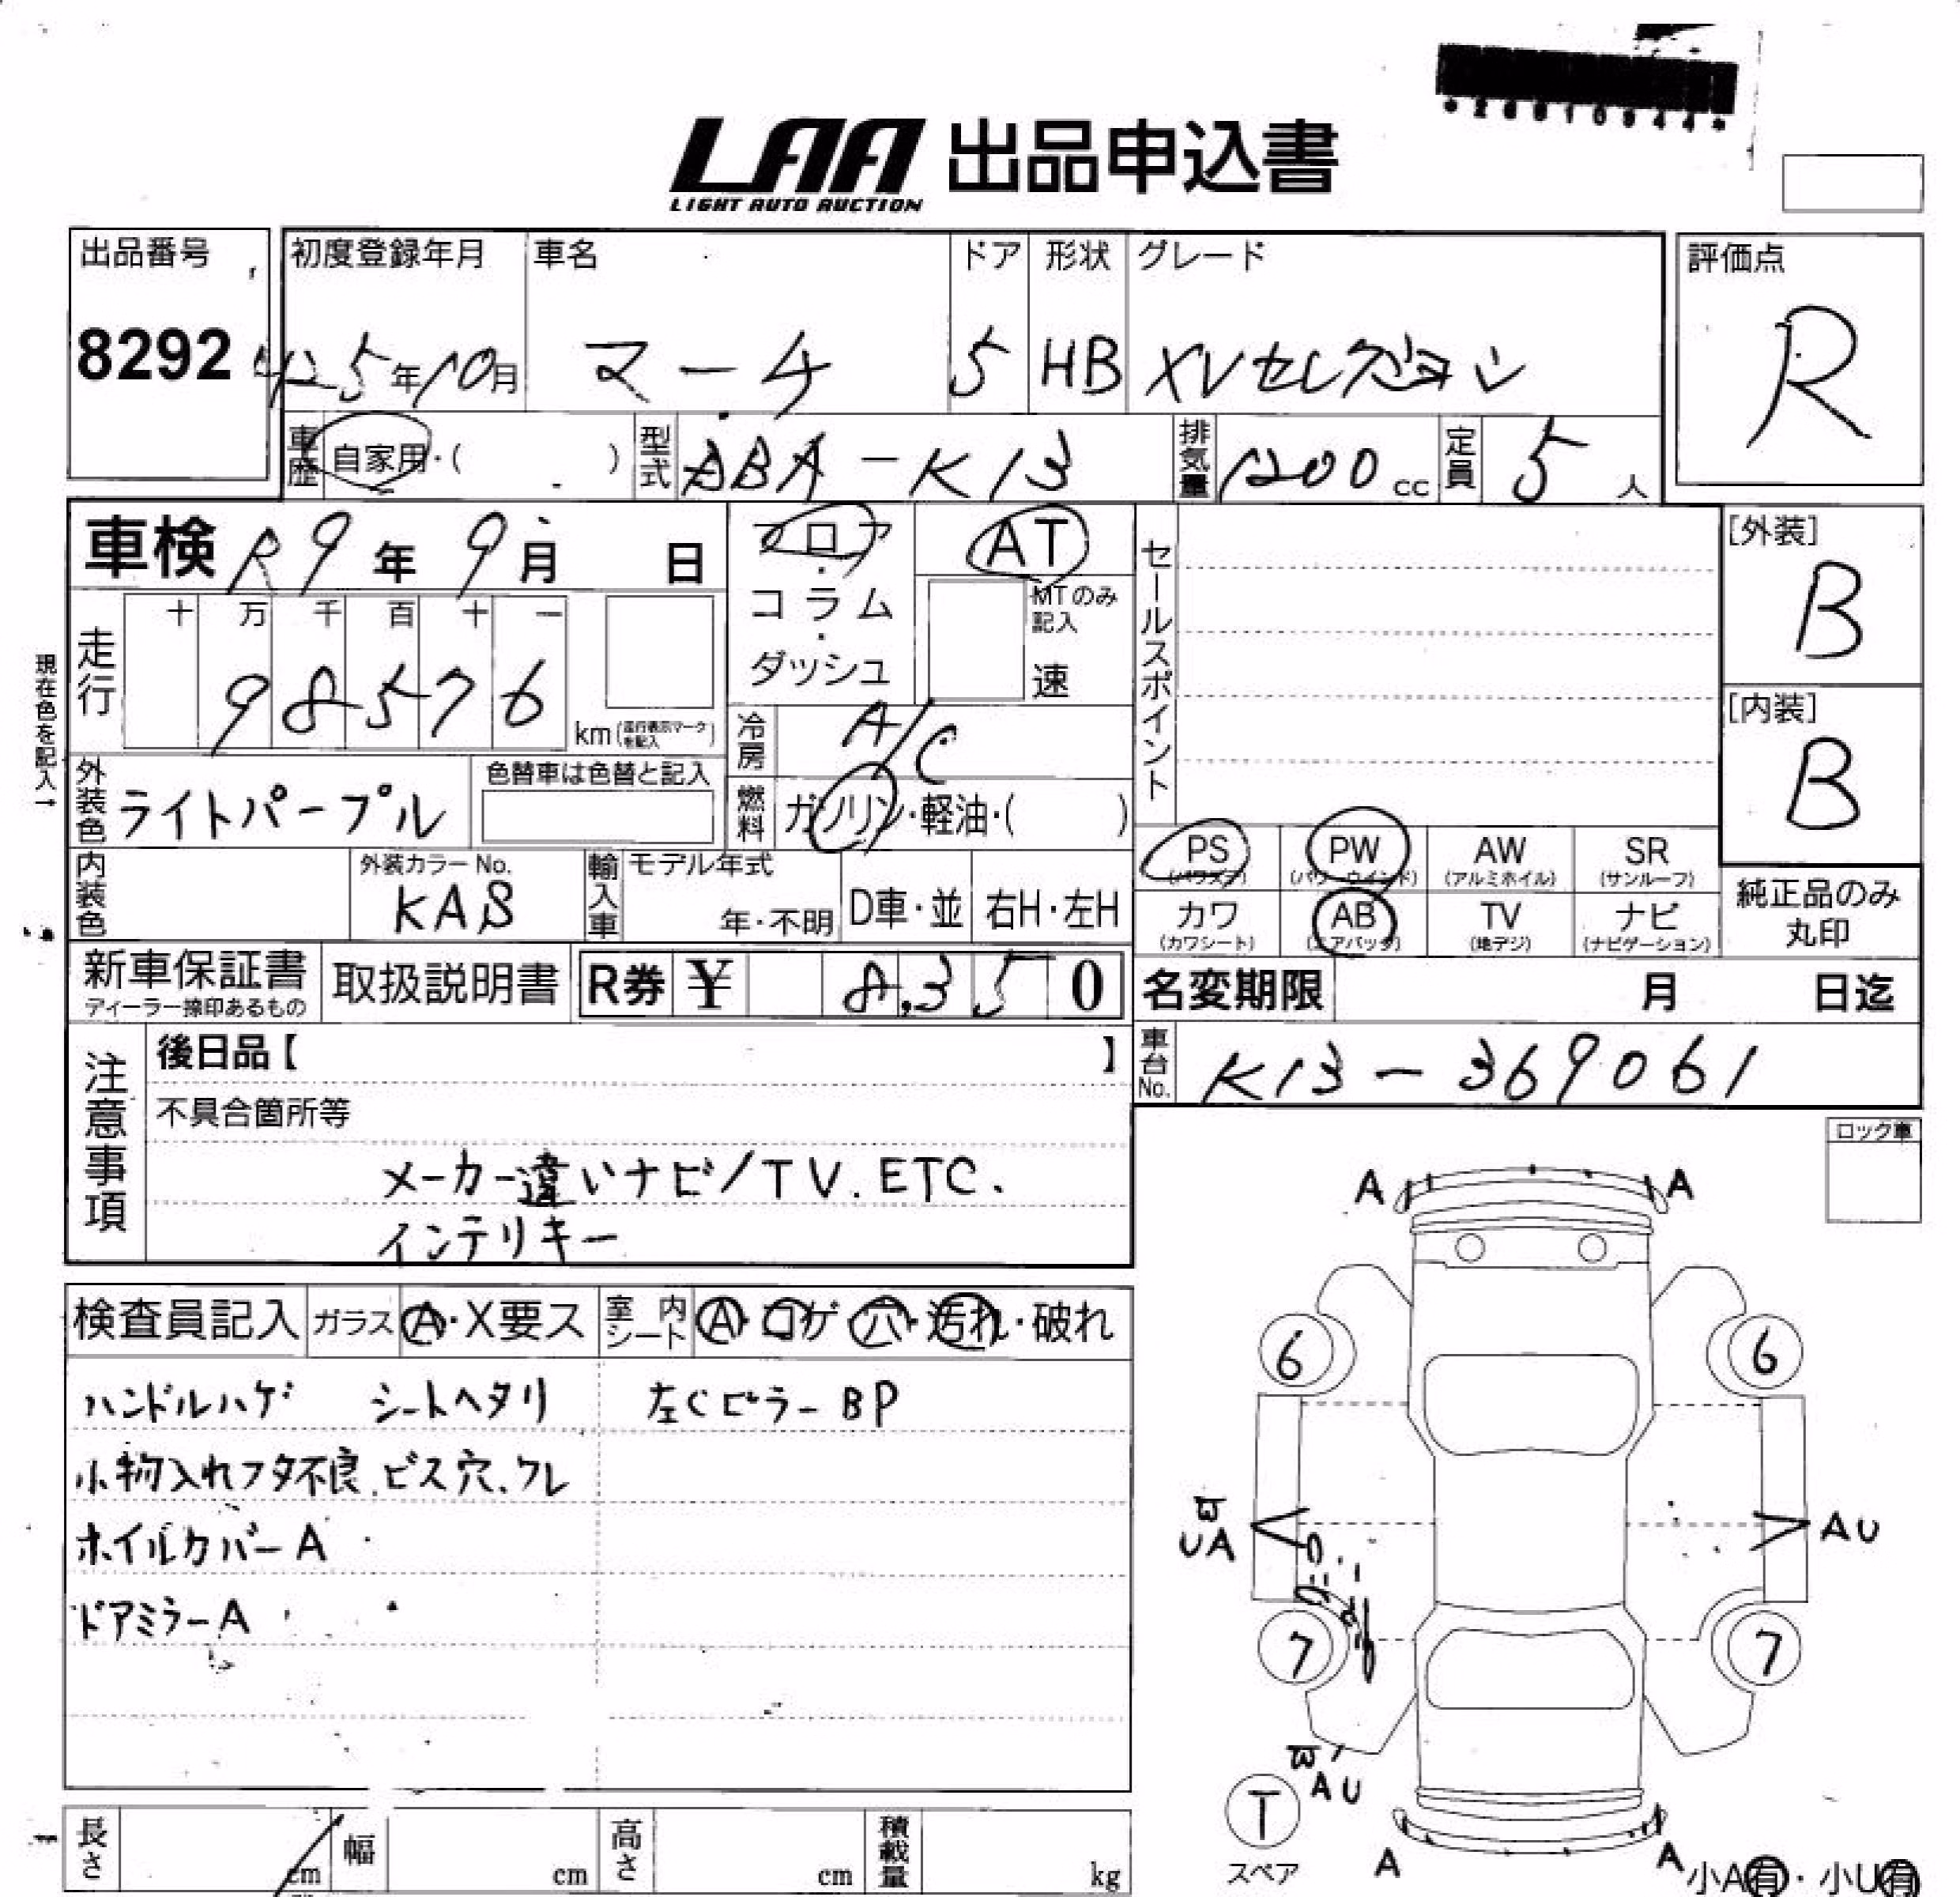 *26810944*
LAA 出品申込書
LIGHT AUTO AUCTION
出品番号
8292
初度登録年月
5年10月
車名
マーチ
ドア
5
形状
HB
グレード
XVセレクション
評価点
R
車歴
自家用・( )
型式
DBA-K13
排気量
1200cc
定員
5人
車検 R9年 9月 日
フロア・コラム・ダッシュ
AT
MTのみ記入
速
セールスポイント
[外装]
B
[内装]
B
現在色を記入→
走行
十 万 千 百 十 一
98576
km(走行表示マークを記入)
冷房
A/C
外装色
ライトパープル
色替車は色替と記入
燃料
ガソリン・軽油・( )
内装色
外装カラーNo.
KAS
輸入車
モデル年式
年・不明
D車・並
右H・左H
PS
(パワステ)
PW
(パワーウインド)
AW
(アルミホイル)
SR
(サンルーフ)
カワ
(カワシート)
AB
(エアバッグ)
TV
(地デジ)
ナビ
(ナビゲーション)
純正品のみ
丸印
新車保証書
ディーラー捺印あるもの
取扱説明書
R券 ¥ 8,350
名変期限 月 日迄
注意事項
後日品【 】
不具合箇所等
メーカー違いナビ/TV.ETC.
インテリキー
車台No.
K13-369061
ロック車
検査員記入
ガラス
A・X要ス
室内シート
A・コゲ・穴・汚れ・破れ
ハンドルハゲ シートヘタリ 左CピラーBP
小物入れフタ不良.ビス穴.ワレ
ホイルカバーA
ドアミラーA
A A
6 6
UA
AU
7 7
AU
T
スペア
A A
小A有・小U有
長さ cm
幅 cm
高さ cm
積載量 kg